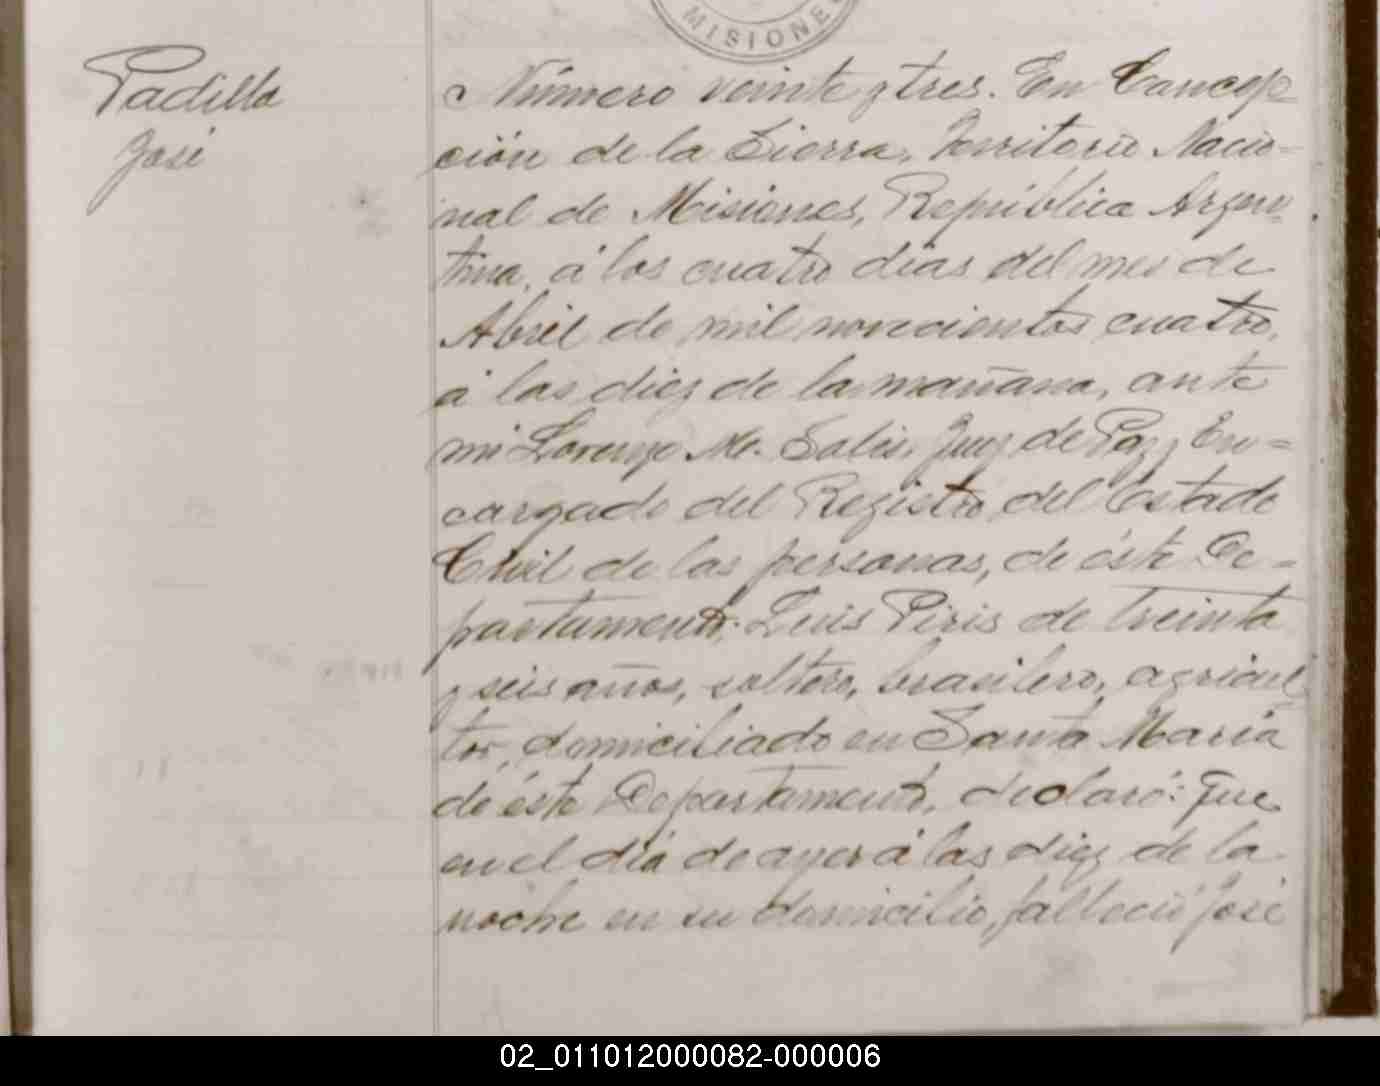 MISIONES
Padilla
José
Número veinte y tres. En Concep
ción de la Sierra, Territorio Nacio-
nal de Misiones, República Argen-
tina, á los cuatro dias del mes de
Abril de mil novecientos cuatro,
á las diez de la mañana, ante
mi Lorenzo M. Solis, Juez de Paz, En-
cargado del Registro del Estado
Civil de las personas, de éste De-
partamento, Luis Piris de treinta
y seis años, soltero, brasilero, agricul-
tor, domiciliado en Santa María
de éste Departamento, declaró: Que
en el día de ayer á las diez de la
noche en su domicilio, falleció José
02_011012000082-000006